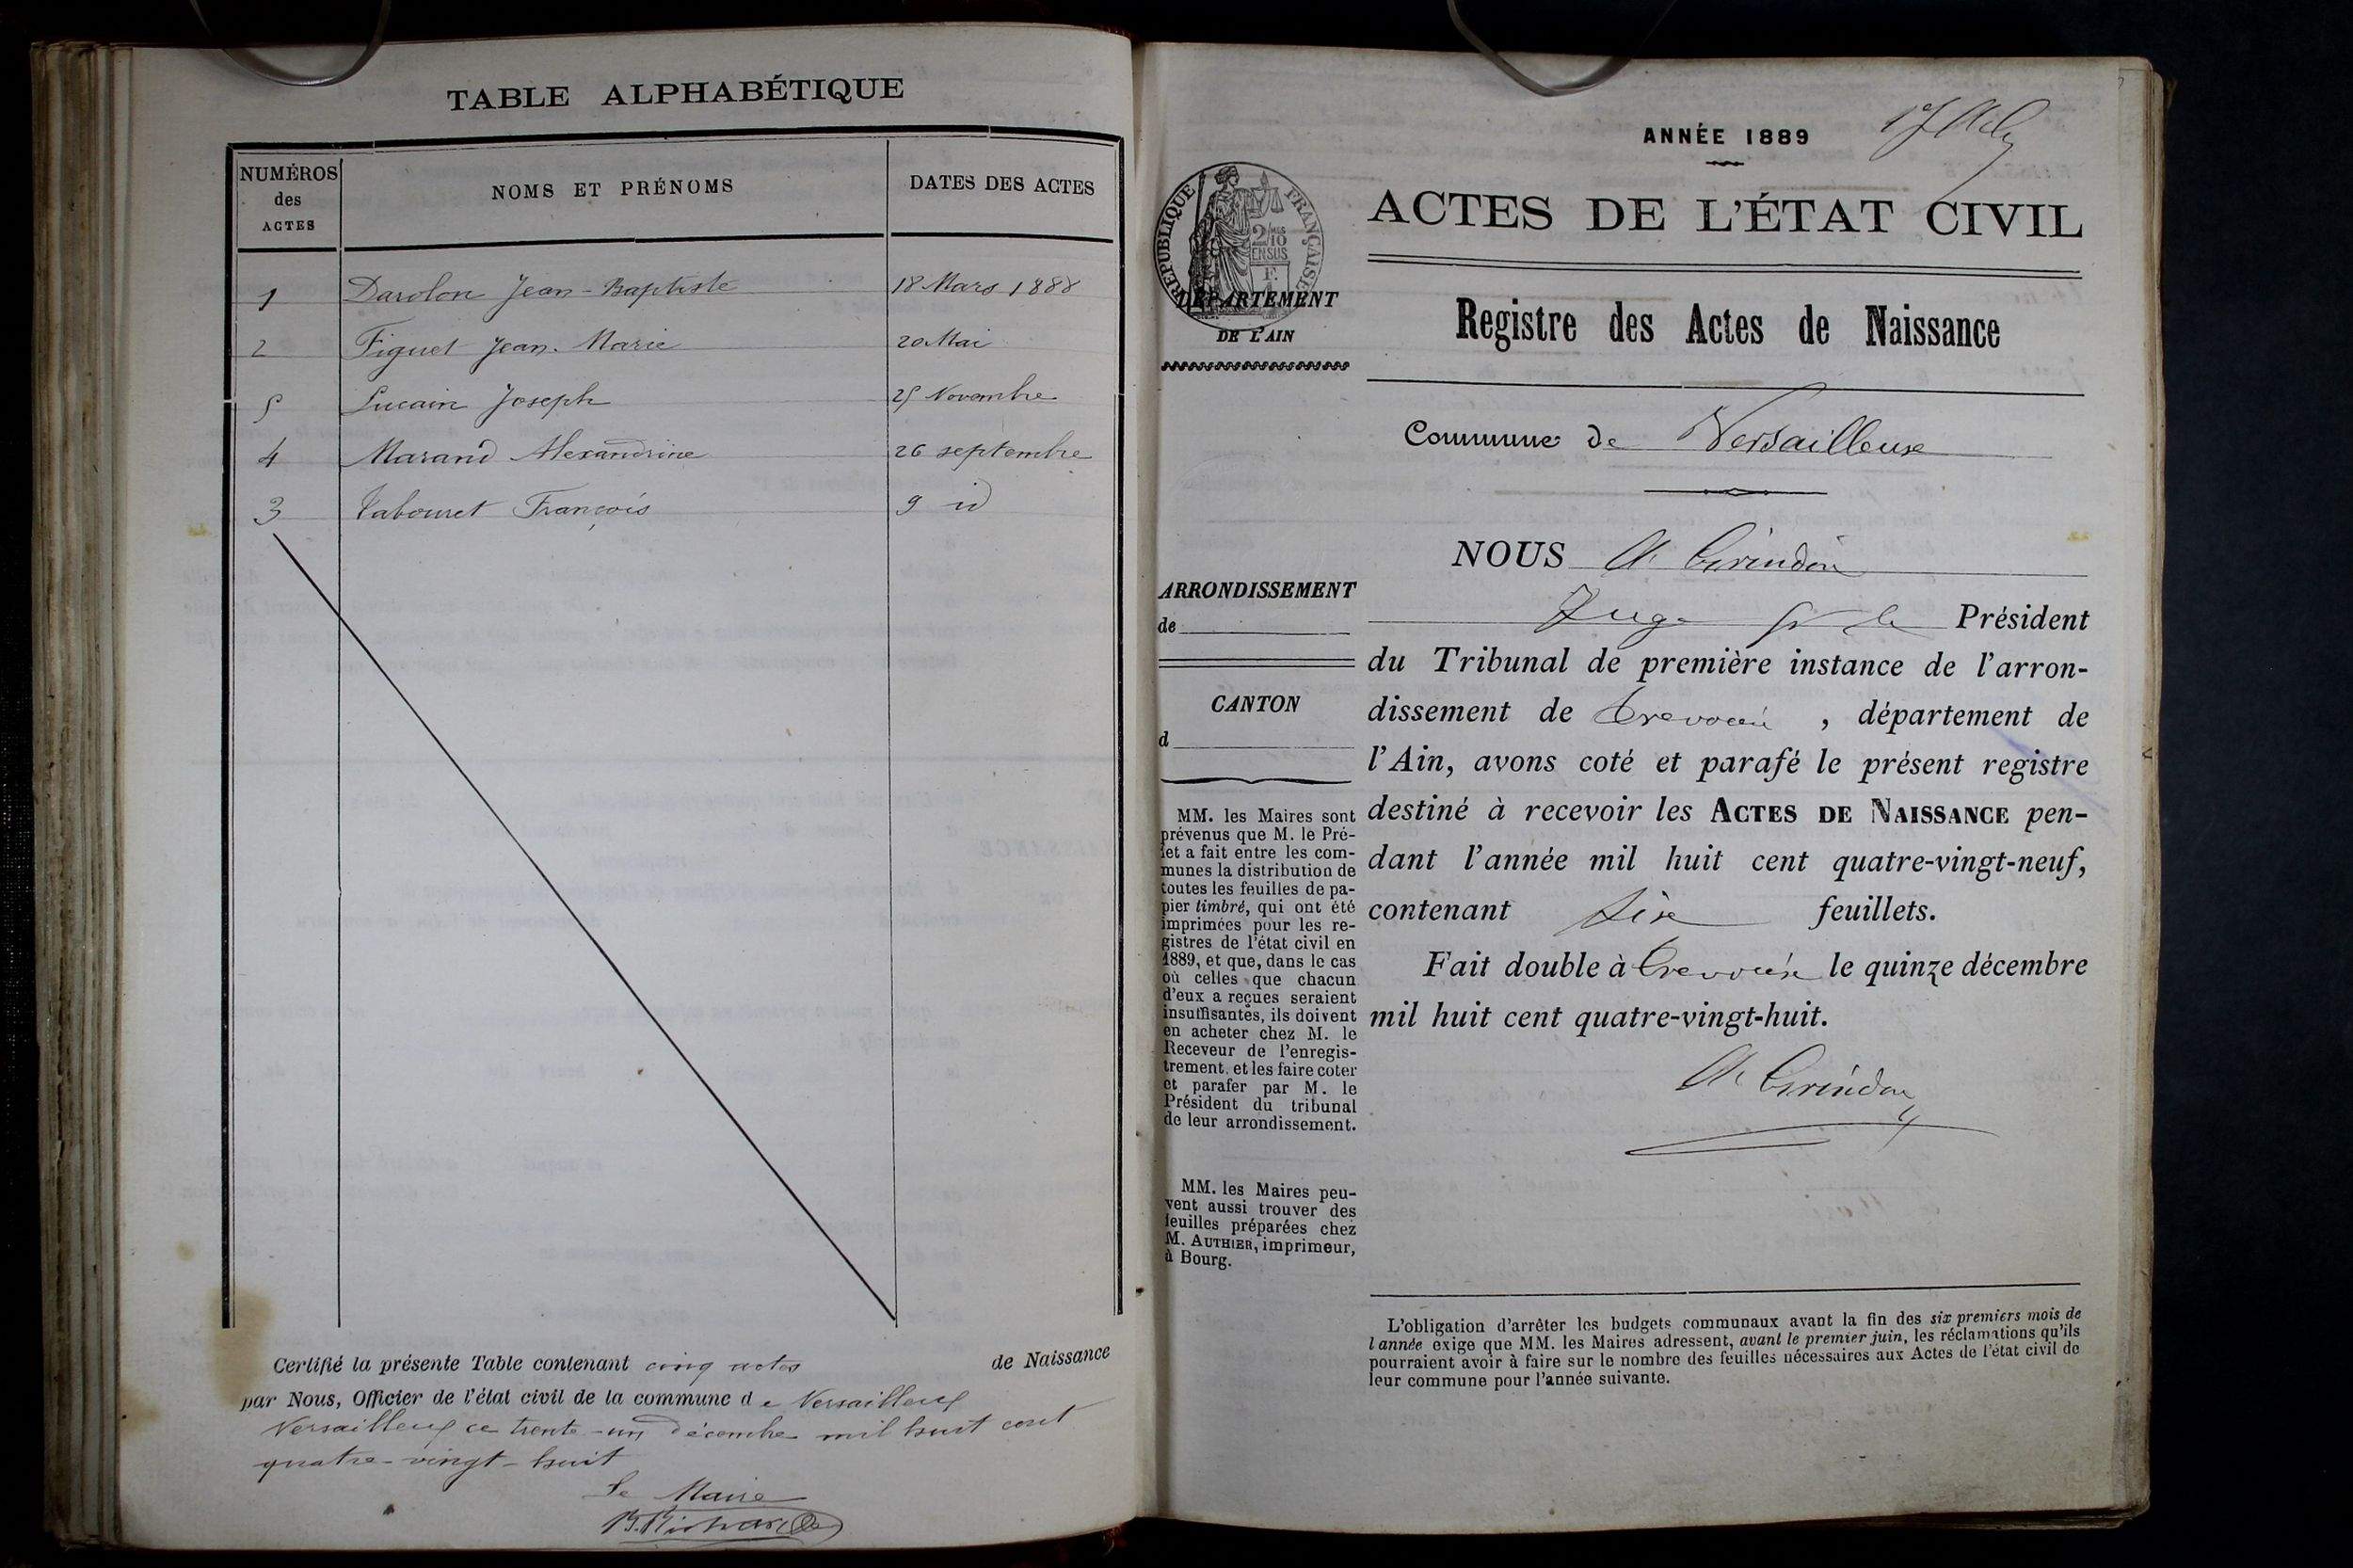 TABLE ALPHABÉTIQUE
NUMÉROS des ACTES
NOMS ET PRÉNOMS
DATES DES ACTES
1 Darolon Jean-Baptiste 18 Mars 1888
2 Figuet Jean-Marie 20 Mai
5 Lucain Joseph 25 Novembre
4 Marand Alexandrine 26 septembre
3 Tabouret François 9 id
Certifié la présente Table contenant cinq actes de Naissance
par Nous, Officier de l'état civil de la commune de Versailleux
Versailleux ce trente-un décembre mil huit cent
quatre-vingt-huit
Le Maire
ANNÉE 1889
ACTES DE L'ÉTAT CIVIL
RÉPUBLIQUE FRANÇAISE
2/10 EN SUS
DÉPARTEMENT
DE L'AIN
Registre des Actes de Naissance
Commune de Versailleux
NOUS A. Grindon
Juge Président
du Tribunal de première instance de l'arron-
dissement de Trevoux, département de
l'Ain, avons coté et parafé le présent registre
destiné à recevoir les ACTES DE NAISSANCE pen-
dant l'année mil huit cent quatre-vingt-neuf,
contenant six feuillets.
Fait double à Trevoux le quinze décembre
mil huit cent quatre-vingt-huit.
A. Grindon
ARRONDISSEMENT
de
CANTON
d
MM. les Maires sont
prévenus que M. le Pré-
fet a fait entre les com-
munes la distribution de
toutes les feuilles de pa-
pier timbré, qui ont été
imprimées pour les re-
gistres de l'état civil en
1889, et que, dans le cas
où celles que chacun
d'eux a reçues seraient
insuffisantes, ils doivent
en acheter chez M. le
Receveur de l'enregis-
trement, et les faire coter
et parafer par M. le
Président du tribunal
de leur arrondissement.
MM. les Maires peu-
vent aussi trouver des
feuilles préparées chez
M. AUTHIER, imprimeur,
à Bourg.
L'obligation d'arrêter les budgets communaux avant la fin des six premiers mois de
l'année exige que MM. les Maires adressent, avant le premier juin, les réclamations qu'ils
pourraient avoir à faire sur le nombre des feuilles nécessaires aux Actes de l'état civil de
leur commune pour l'année suivante.